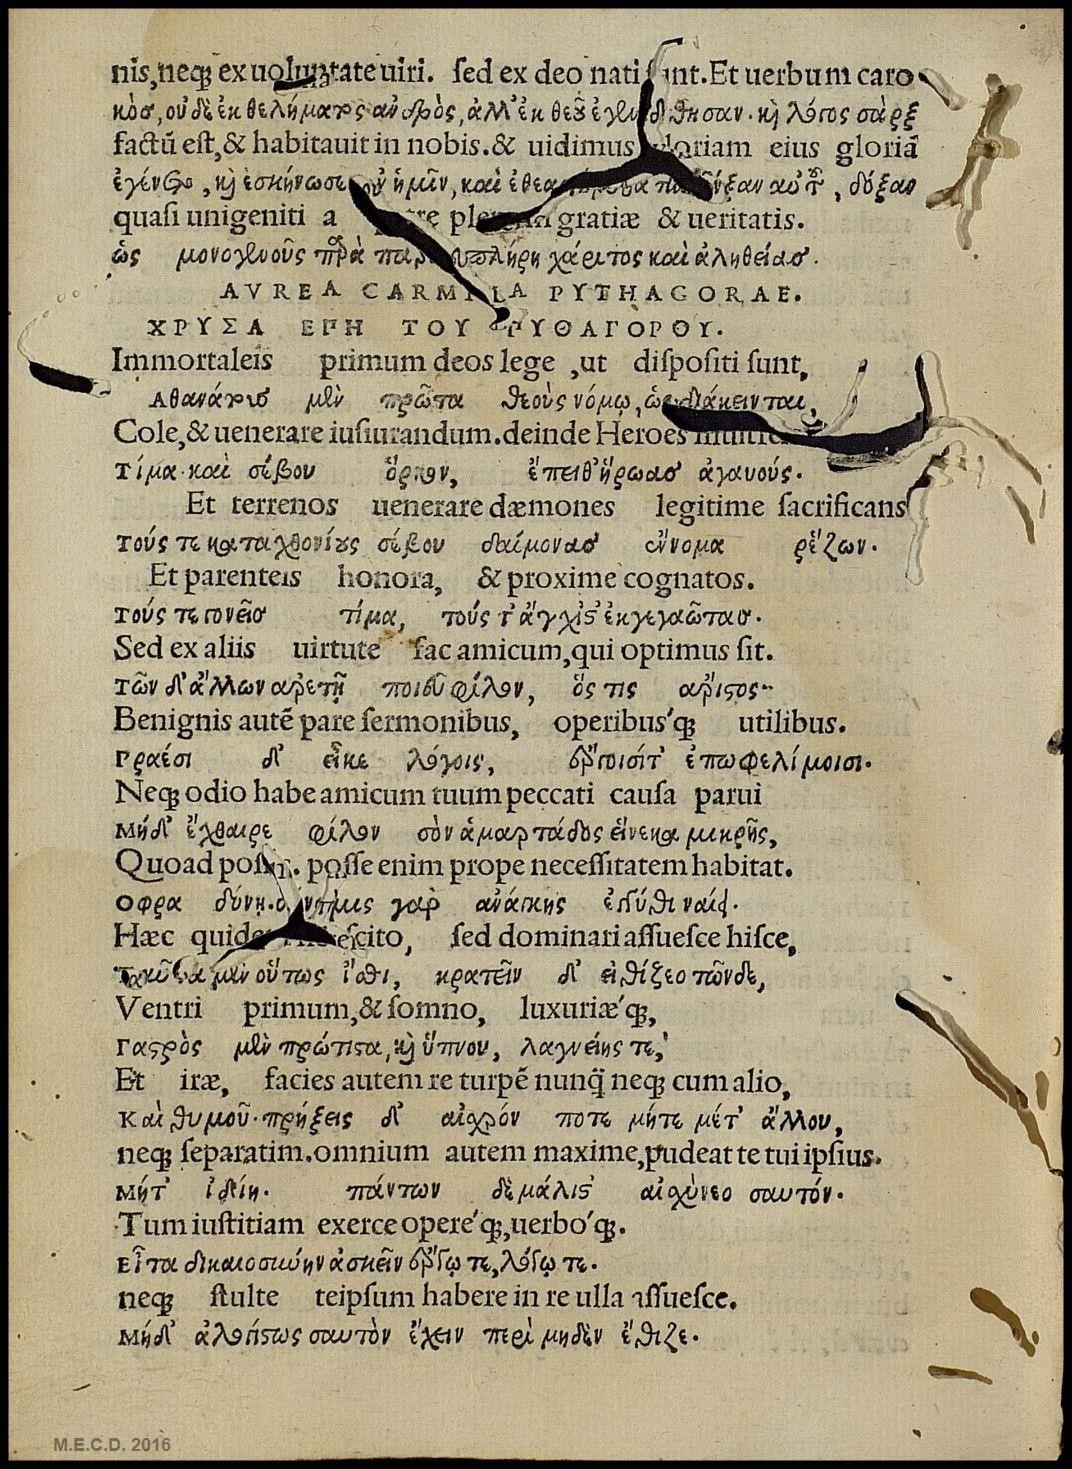 nis,neq; ex uoluntate uiri. sed ex deo nati sunt.Et uerbum caro
κὸσ,οὐδὲ ἐκ θελήματος ἀνδρὸς,ἀλλ' ἐκ θεοῦ ἐγεννήθησαν.κỳ λόγος σὰρξ
factũ est,& habitauit in nobis.& uidimus gloriam eius gloriã
ἐγένετο,κỳ ἐσκήνωσεν ἐν ἡμῖν,καὶ ἐθεασάμεθα τὴν δόξαν αὐτοῦ,δόξαν
quasi unigeniti a patre plenum gratiæ & ueritatis.
ὡς μονογενοῦς πρὰ πατρὸς πλήρη χάριτος καὶ ἀληθείασ.
AVREA CARMINA PYTHAGORAE.
ΧΡΥΣΑ ΕΠΗ ΤΟΥ ΠΥΘΑΓΟΡΟΥ.
Immortaleis primum deos lege ,ut dispositi sunt,
Αθανάτουσ μὲν πρῶτα θεοὺς νόμῳ,ὡς διάκεινται,
Cole,& uenerare iusiurandum.deinde Heroes
Τίμα·καὶ σέβου ὅρκον, ἔπειθ' ἥρωασ ἀγαυούς.
Et terrenos uenerare dæmones legitime sacrificans
Τούς τε καταχθονίους σέβου δαίμονασ ἔννομα ῥέζων.
Et parenteis honora, & proxime cognatos.
Τούς τε γονεῖσ τίμα, τούς τ' ἄγχιστ' ἐκγεγαῶτασ.
Sed ex aliis uirtute fac amicum,qui optimus sit.
Τῶν δ' ἄλλων ἀρετῇ ποιοῦ φίλον, ὅς τις ἄριστος.
Benignis autẽ pare sermonibus, operibus'q; utilibus.
Πραέσι δ' εἶκε λόγοις, ἔργοισίτ' ἐπωφελίμοισι.
Neq; odio habe amicum tuum peccati causa parui
Μήδ' ἔχθαιρε φίλον σὸν ἁμαρτάδος εἵνεκα μικρῆς,
Quoad possis. posse enim prope necessitatem habitat.
Οφρα δύνῃ.δύναμις γὰρ ἀνάγκης ἐγγύθι ναίει.
Hæc quidem scito, sed dominari assuesce hisce,
Ταῦτα μὲν οὕτως ἴσθι, κρατεῖν δ' εἰθίζεο τῶνδε,
Ventri primum,& somno, luxuriæ'q;,
Γαστρὸς μὲν πρώτιστα,κỳ ὕπνου, λαγνείης τε,
Et iræ, facies autem re turpẽ nunq̃ neq; cum alio,
Καὶ θυμοῦ·πρήξεις δ' αἰσχρόν ποτε μήτε μέτ' ἄλλου,
neq; separatim.omnium autem maxime,pudeat te tui ipsius.
Μήτ' ἰδίῃ. πάντων δὲ μάλιστ' αἰσχύνεο σαυτόν.
Tum iustitiam exerce opere'q;,uerbo'q;.
Εἶτα δικαιοσύνην ἀσκεῖν ἔργῳ τε,λόγῳ τε.
neq; stulte teipsum habere in re ulla assuesce.
Μήδ' ἀλογίστως σαυτὸν ἔχειν περὶ μηδὲν ἔθιζε.
M.E.C.D. 2016